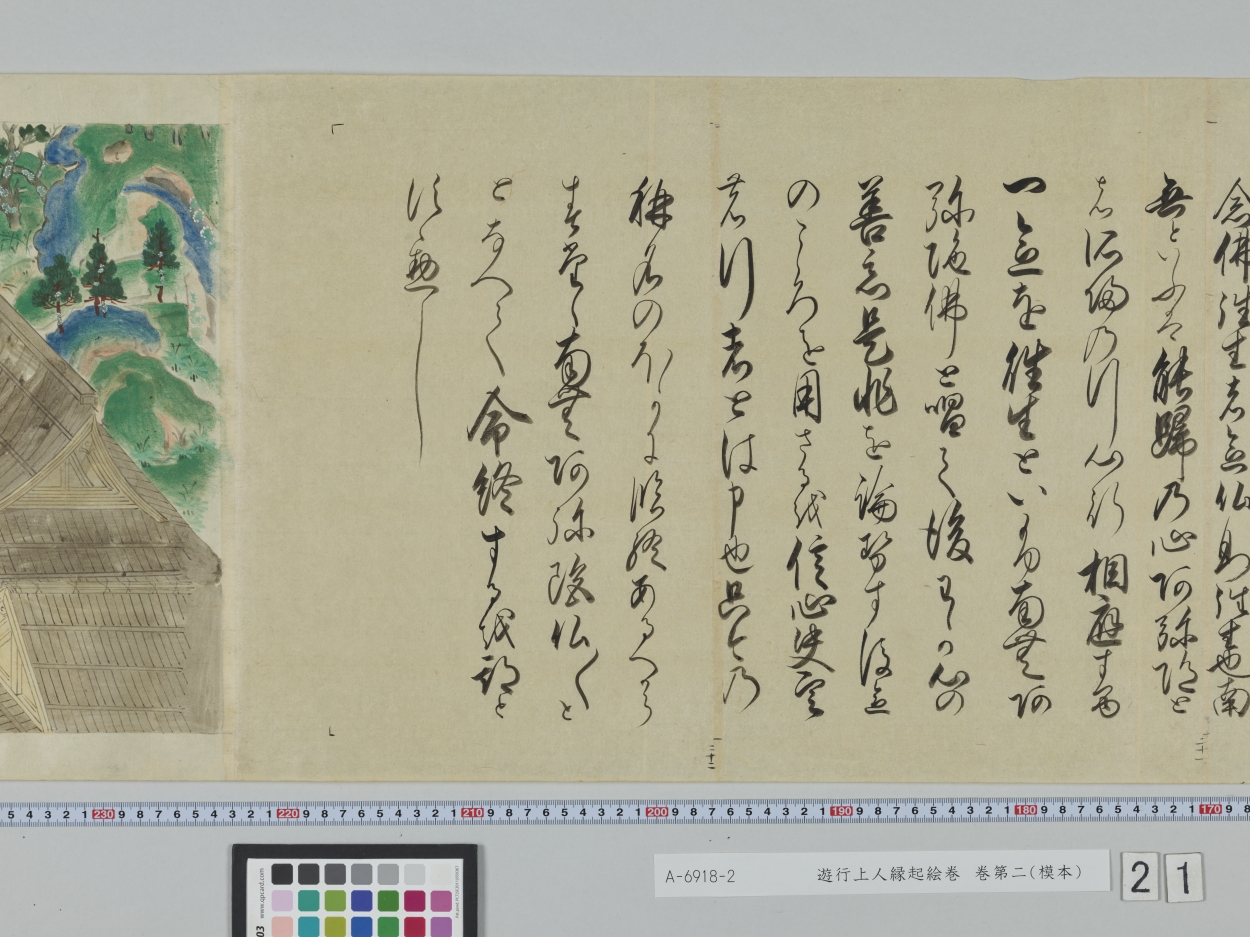 念佛往生者念佛即往生也南
無といふは能歸の心阿弥陀と
は所歸の行心行相應する
一念を往生といふ南無阿
弥陀佛と唱て後我心の
善惡是非を論せす後念
のこゝろを用さるを信心決定
の行者とは申也只今の
称名のほかに臨終あるへから
す唯南無阿弥陀仏〳〵と
となへて命終するを期と
すへし
A-6918-2 遊行上人縁起絵巻 巻第二(模本)
2 1
5 4 3 2 1 230 9 8 7 6 5 4 3 2 1 220 9 8 7 6 5 4 3 2 1 210 9 8 7 6 5 4 3 2 1 200 9 8 7 6 5 4 3 2 1 190 9 8 7 6 5 4 3 2 1 180 9 8 7 6 5 4 3 2 1 170 9 8